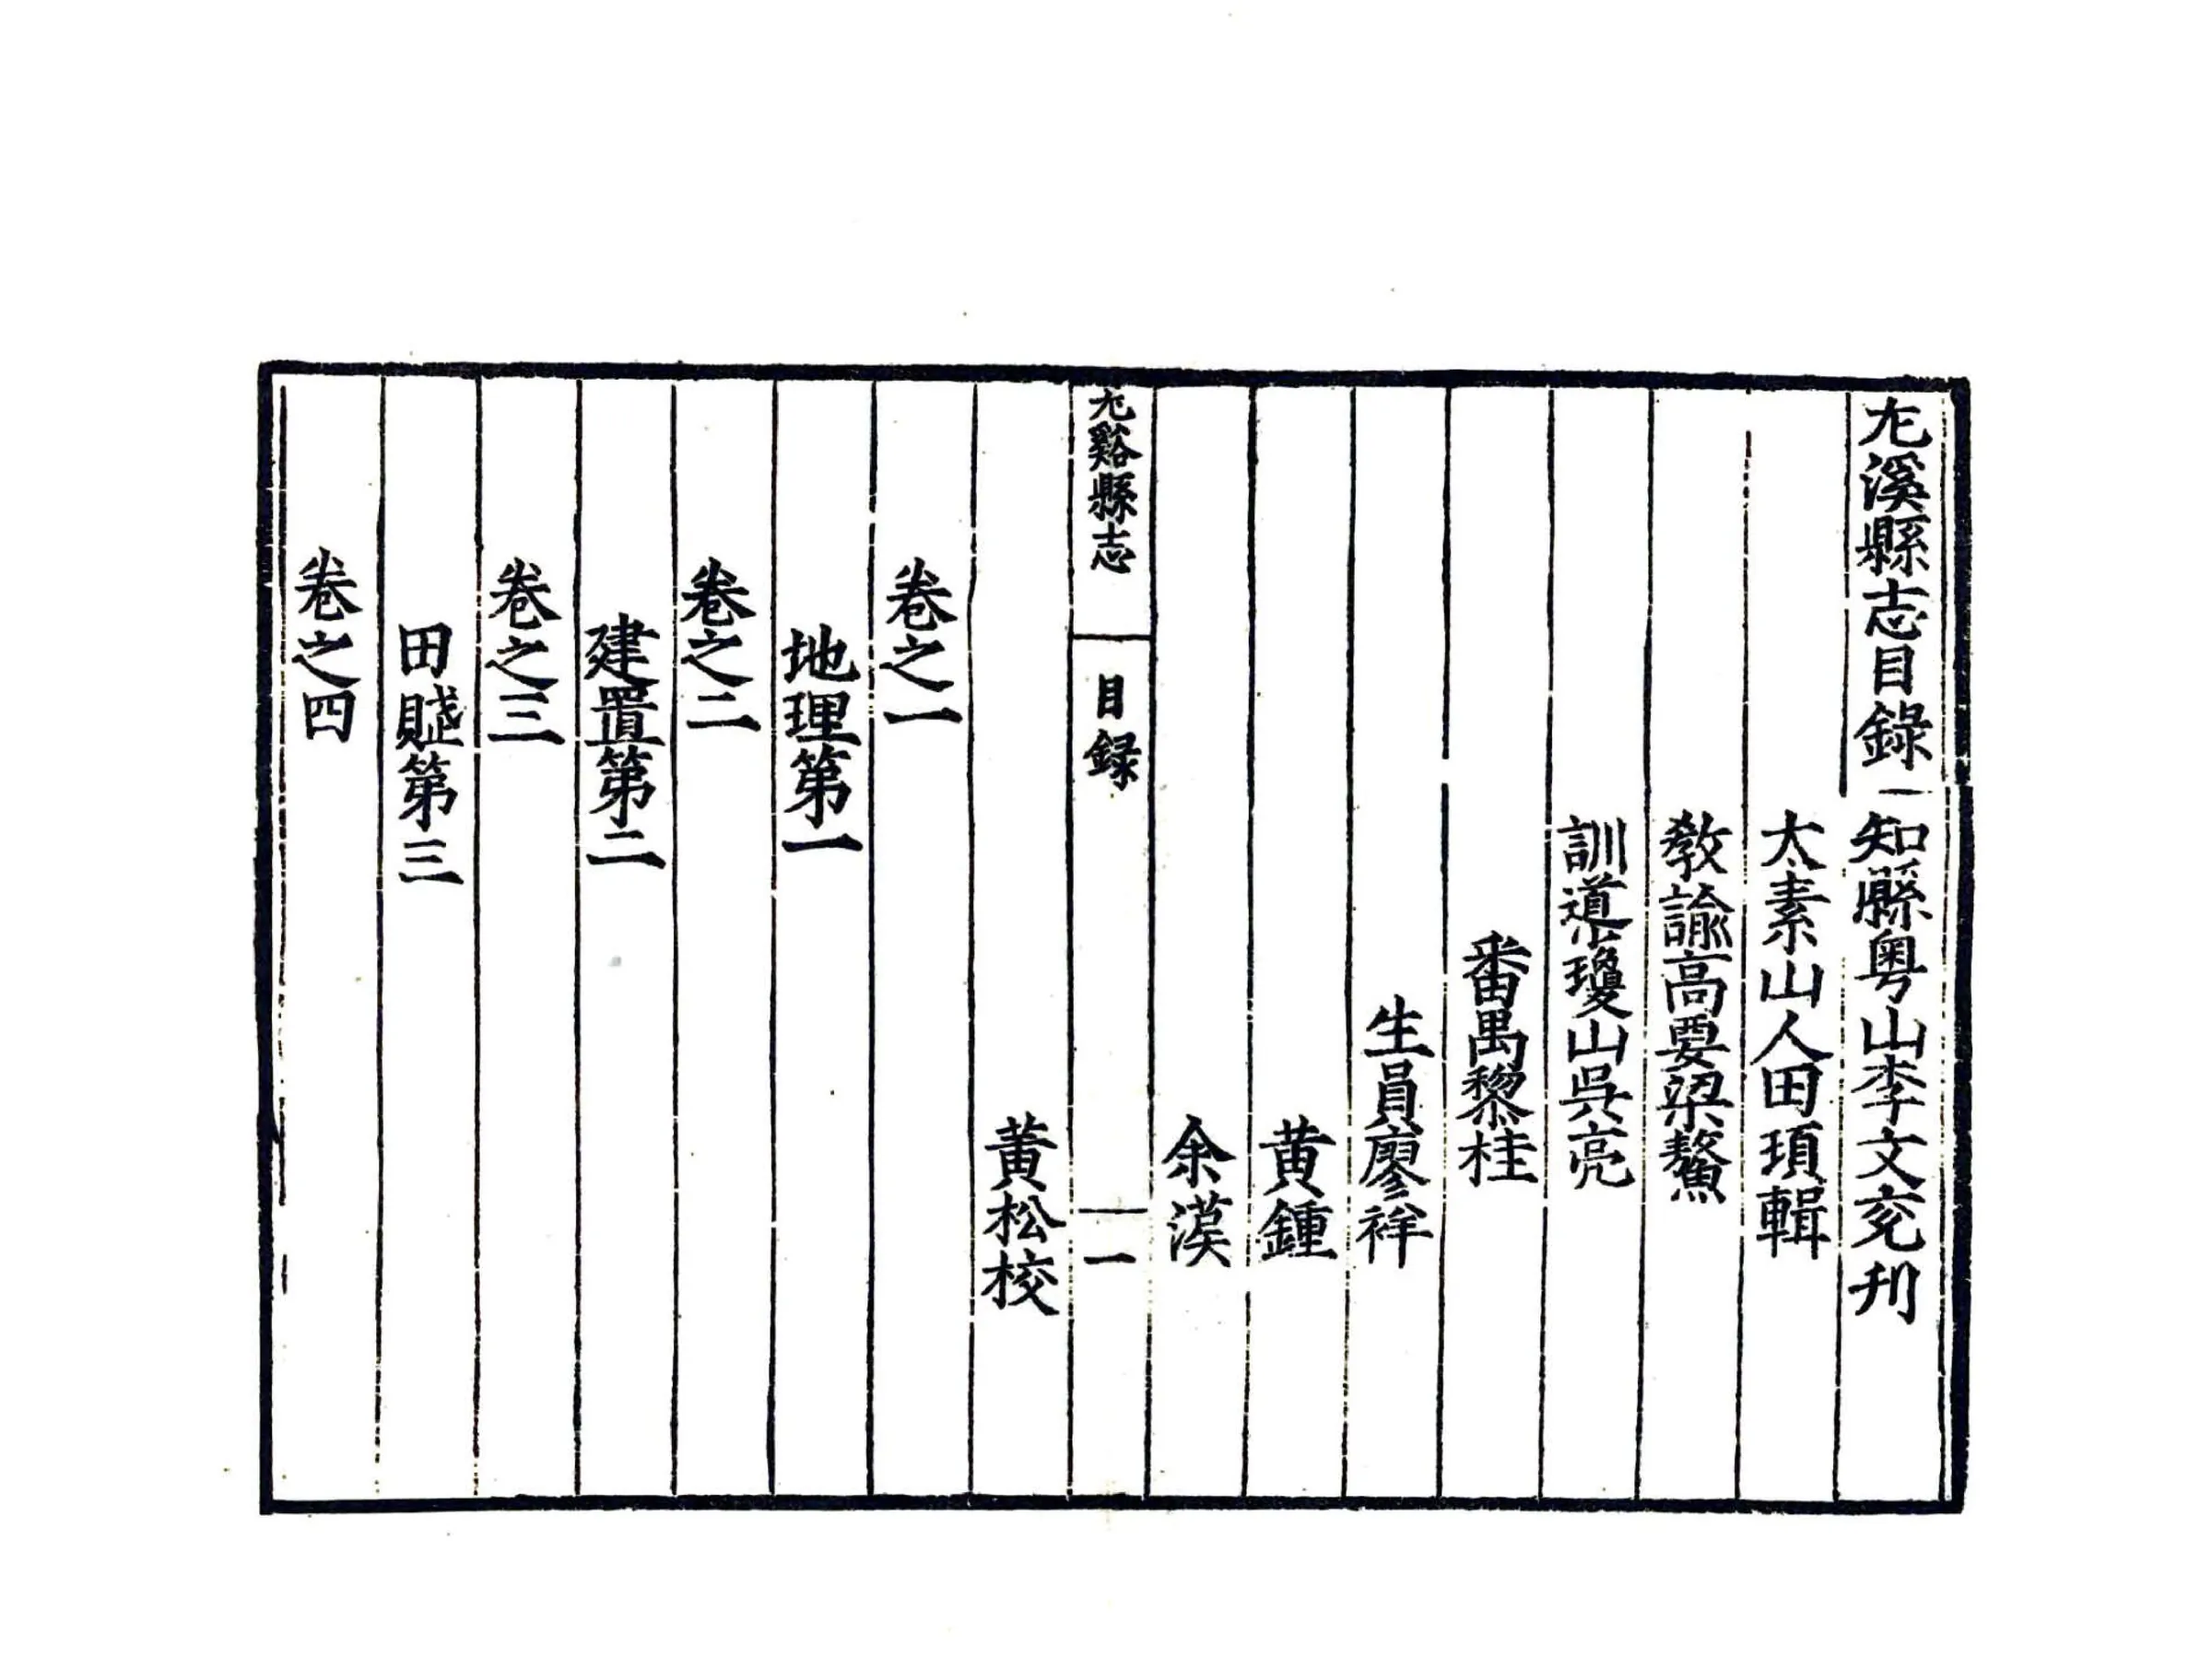 尤溪縣志目錄 知縣粤山李文兖刋
太素山人田頊輯
教諭高要梁鰲
訓導瓊山吳亮
番禺黎桂
生員廖祥
黄鍾
余漢
尤谿縣志 目録 一
黄松校
卷之一
地理第一
卷之二
建置第二
卷之三
田賦第三
卷之四